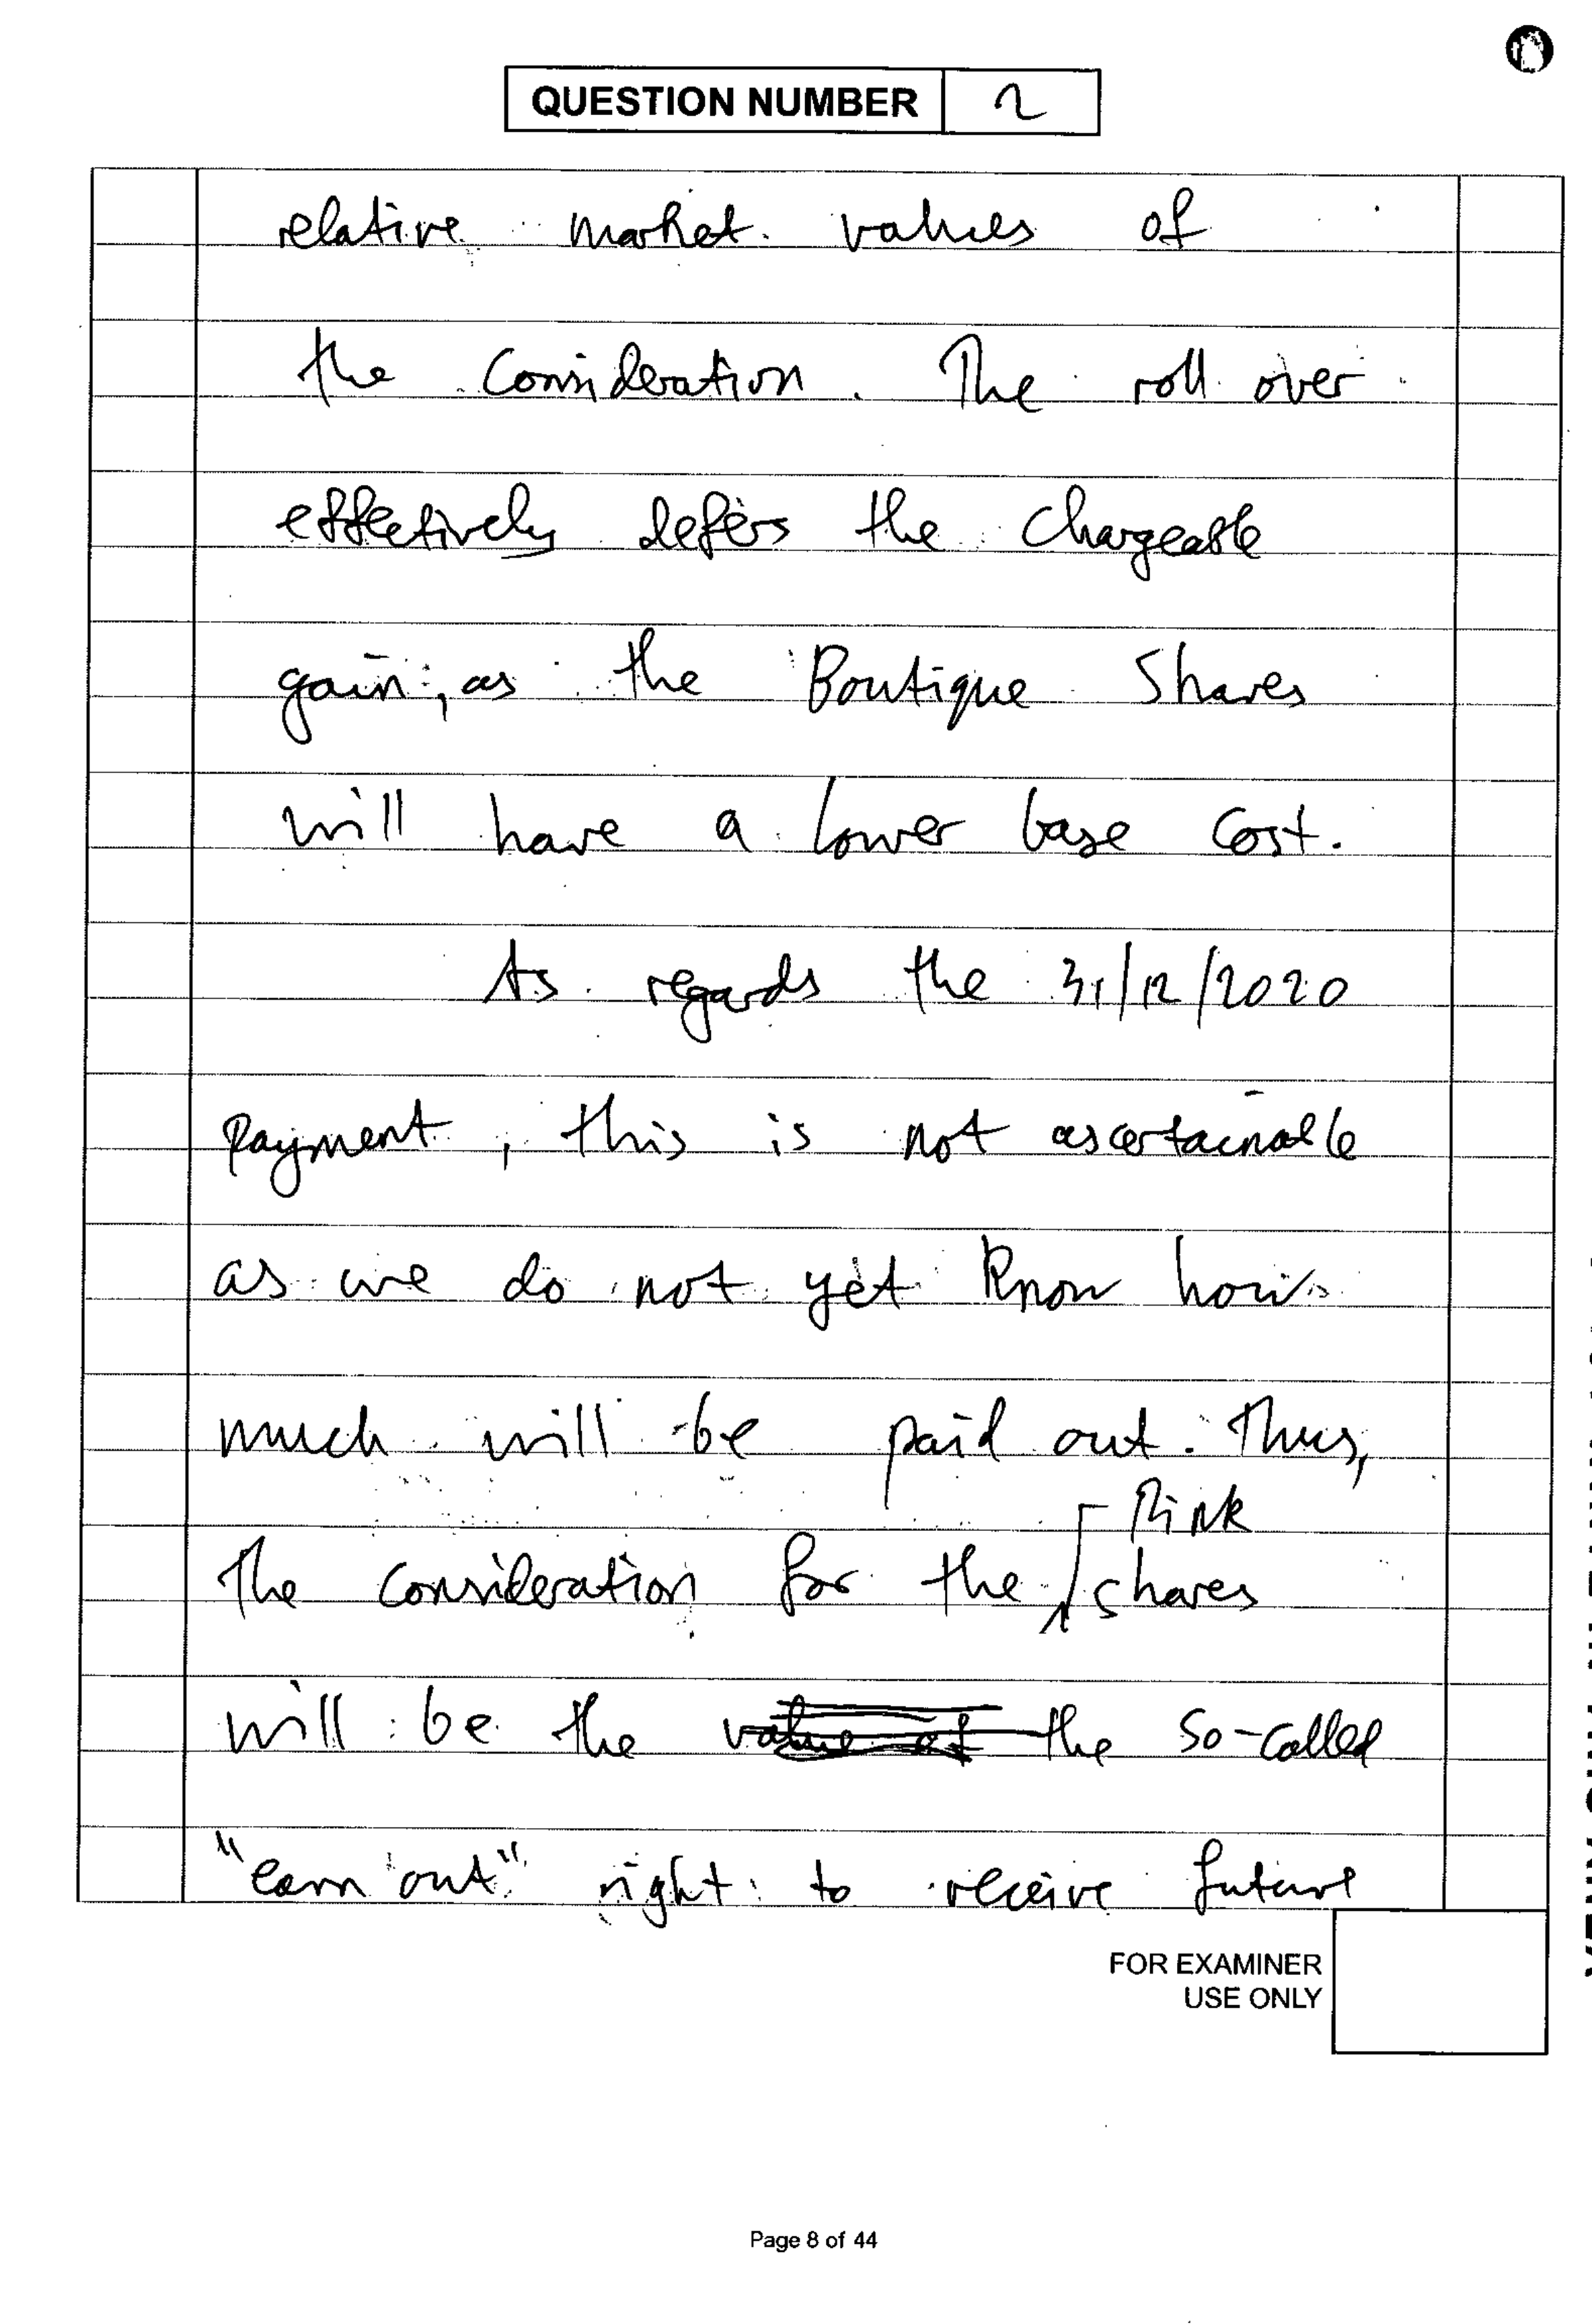 QUESTION NUMBER 2
relative market values of
the consideration. The roll over
effectively defers the chargeable
gain, as the Boutique Shares
will have a lower base cost.
As regards the 31/12/2020
Payment, this is not ascertainable
as we do not yet know how
much will be paid out. Thus,
Pink
the consideration for the shares
will be the value of the so-called
"earn out" right to receive future
FOR EXAMINER
USE ONLY
Page 8 of 44